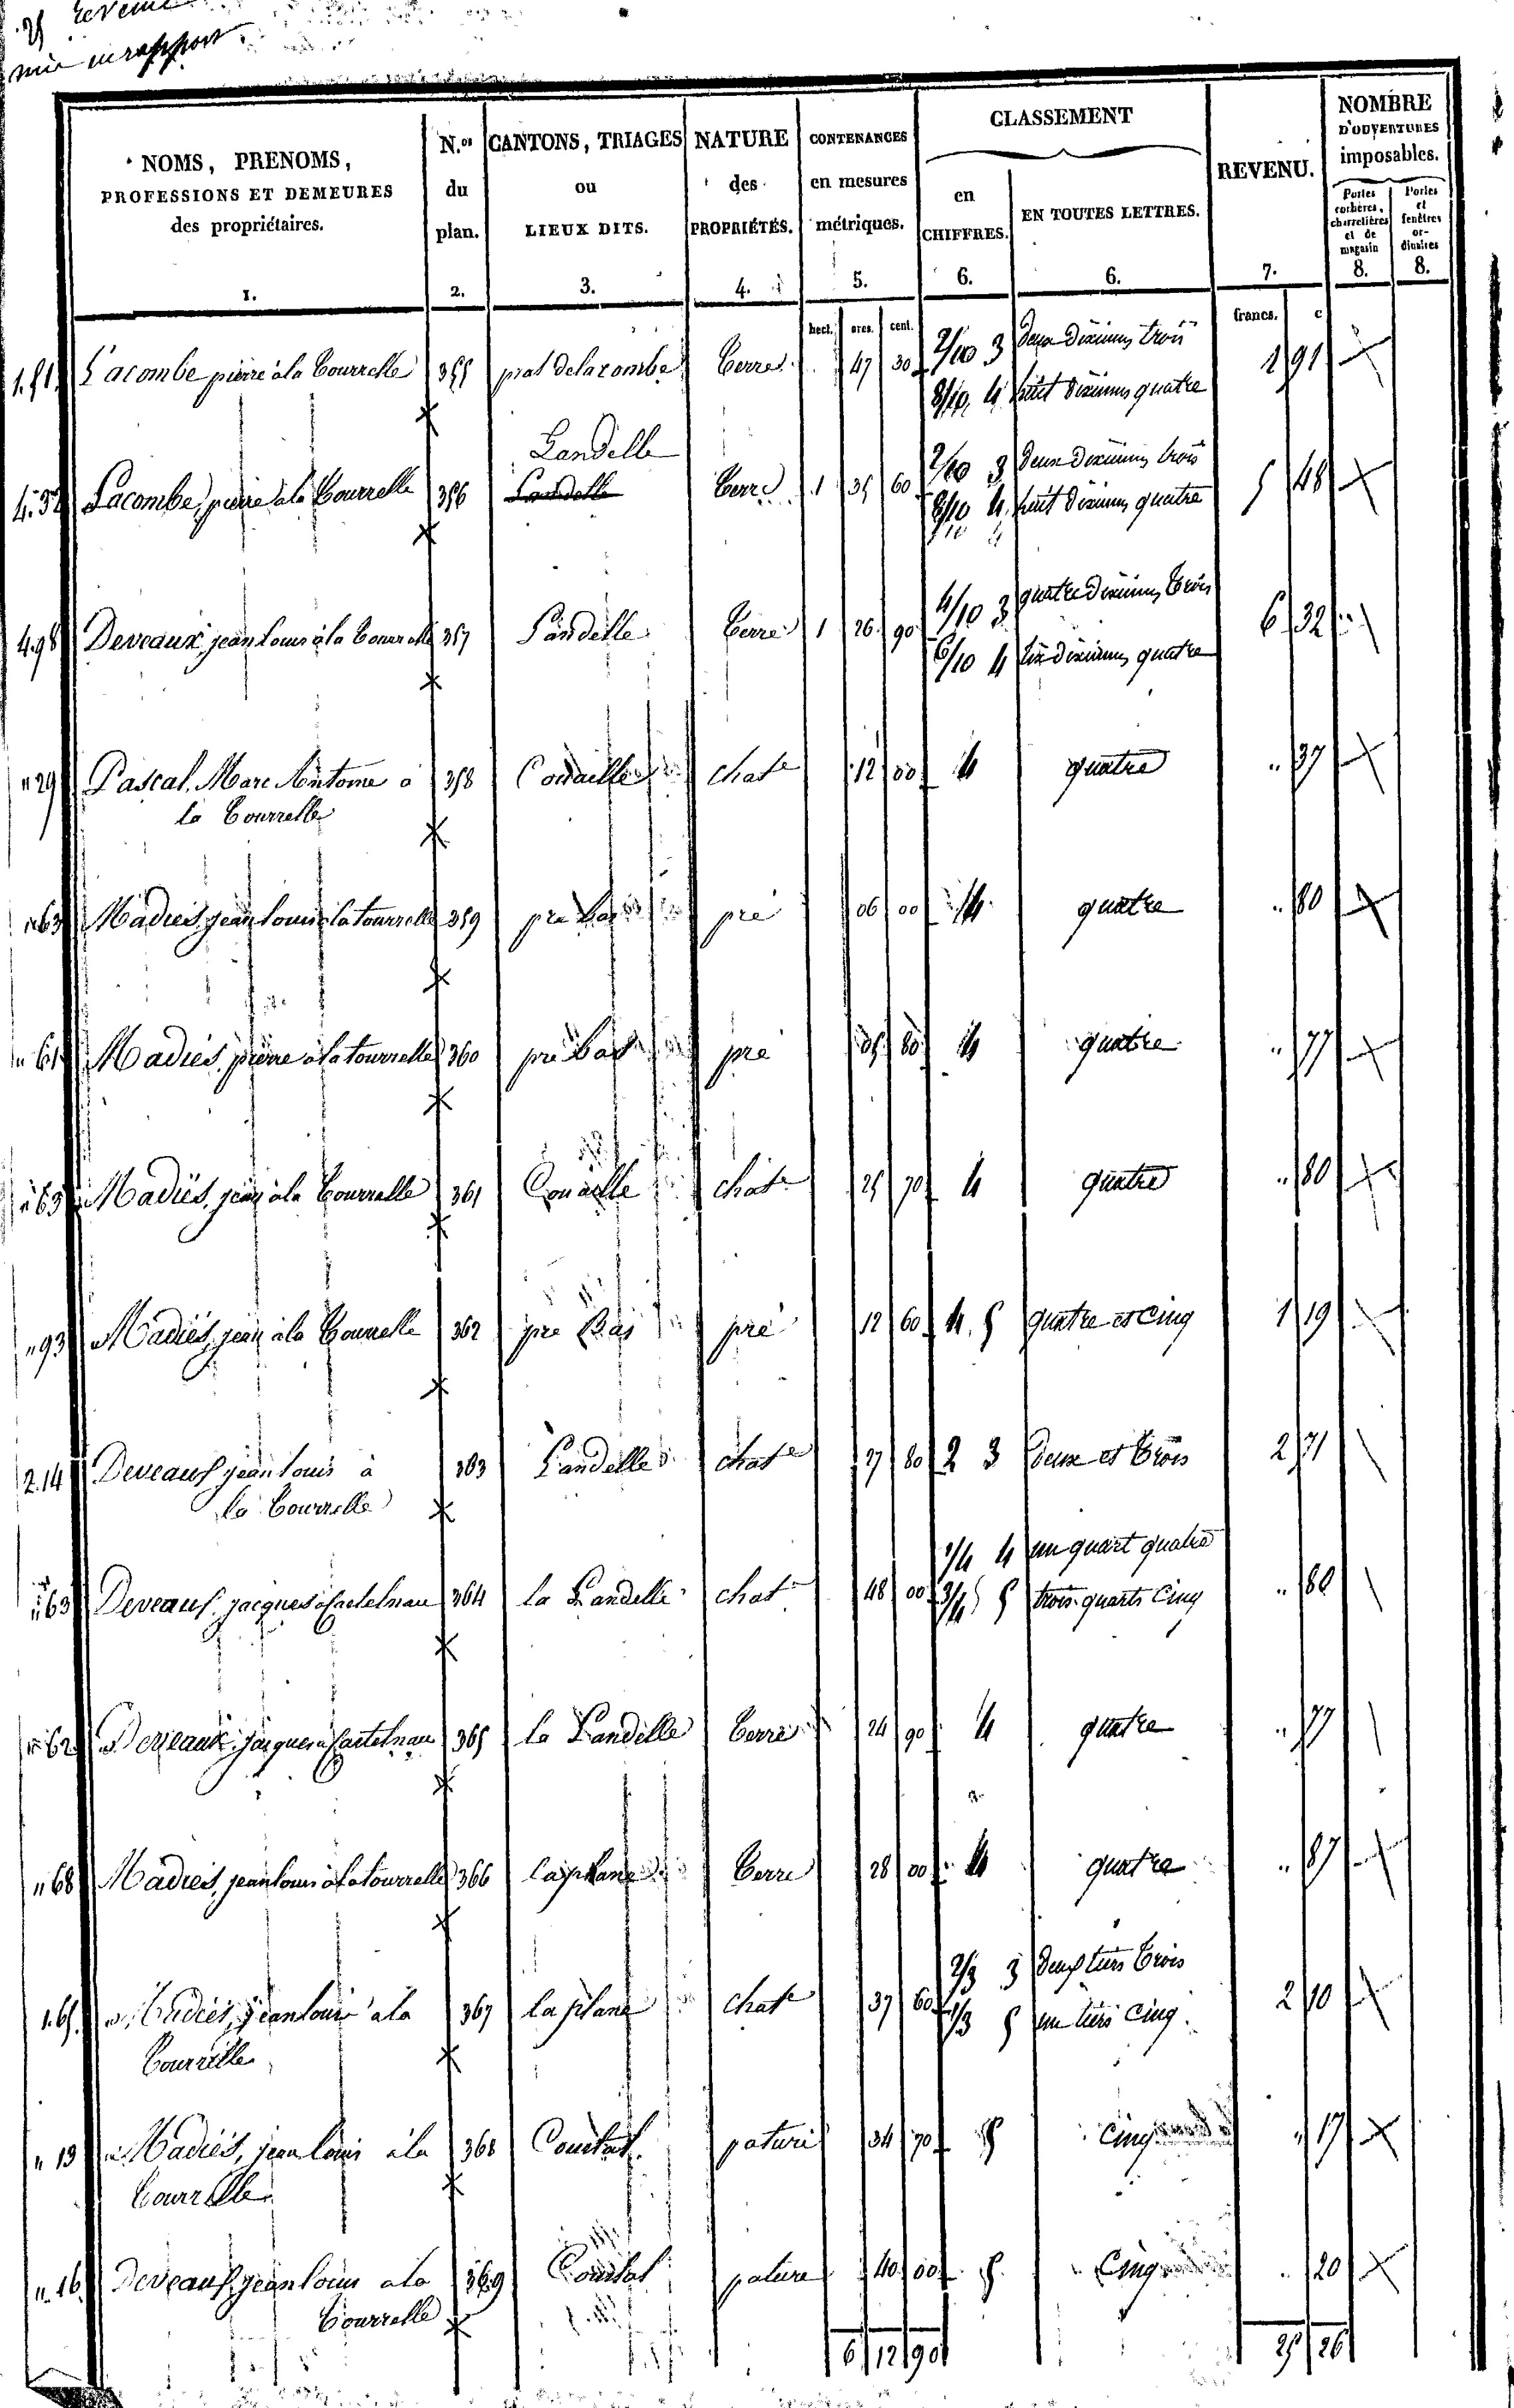 revenu
mis en rapport
NOMS, PRENOMS,
PROFESSIONS ET DEMEURES
des propriétaires.
1.
N.os
du
plan.
2.
CANTONS, TRIAGES
ou
LIEUX DITS.
3.
NATURE
des
PROPRIÉTÉS.
4.
CONTENANCES
en mesures
métriques.
5.
CLASSEMENT
en
CHIFFRES.
6.
EN TOUTES LETTRES.
6.
REVENU.
7.
NOMBRE
D'OUVERTURES
imposables.
Portes
cochères,
charretières
et de
magasin
8.
Portes
et
fenêtres
or-
dinaires
8.
hect. ares. cent.
francs. c
1.51 Lacombe pierre à la Tourrelle 355 prat delacombe Terre 47 30 2/10 3 deux dixiemes trois 1 91
8/10 4 huit dixiemes quatre
Landelle
4.32 Lacombe, pierre à la Tourrelle 356 Landelle Terre 1 35 60 2/10 3 deux dixiemes trois 5 48
8/10 4 huit dixiemes quatre
4.98 Deveaux jean louis à la Tourrelle 357 Landelle Terre 1 26 90 4/10 3 quatre dixiemes trois 6 32
6/10 4 six dixiemes quatre
" 29 Pascal, Marc Antoine à 358 chate 12 00 4 quatre " 37
la Tourrelle
" 63 Madiés, jean louis à la tourrelle 359 pre bas pré 06 00 4 quatre " 80
" 61 Madiés, pierre à la tourrelle 360 pre bas pré 05 80 4 quatre " 77
" 63 Madiés, jean à la Tourrelle 361 chate 25 70 4 quatre " 80
" 93 Madiés, jean à la Tourrelle 362 pre Bas pré 12 60 4. 5 quatre et Cinq 1 19
2.14 Deveaux jean louis à 363 Landelle chate 27 80 2 3 deux et trois 2 71
la Tourrelle
" 63 Deveaux jacques à Castelnau 364 la Landelle chate 48 00 1/4 4 un quart quatre " 80
3/4 5 trois quarts Cinq
" 62 Deveaux jacques à Castelnau 365 la Landelle Terre 24 90 4 quatre " 77
" 68 Madiés, jean louis à la tourrelle 366 la plane Terre 28 00 4 quatre " 87
1.65 Madiés, jean louis à la 367 la plane chate 37 60 2/3 3 deux tiers trois 2 10
Tourrelle 1/3 5 un tiers Cinq
" 13 Madiés, jean louis à la 368 Coustat pature 34 70 5 Cinq " 17
Tourrelle
" 16 Deveaux jean louis à la 369 Coustat pature 40 00 5 Cinq " 20
Tourrelle
6 12 90 25 26